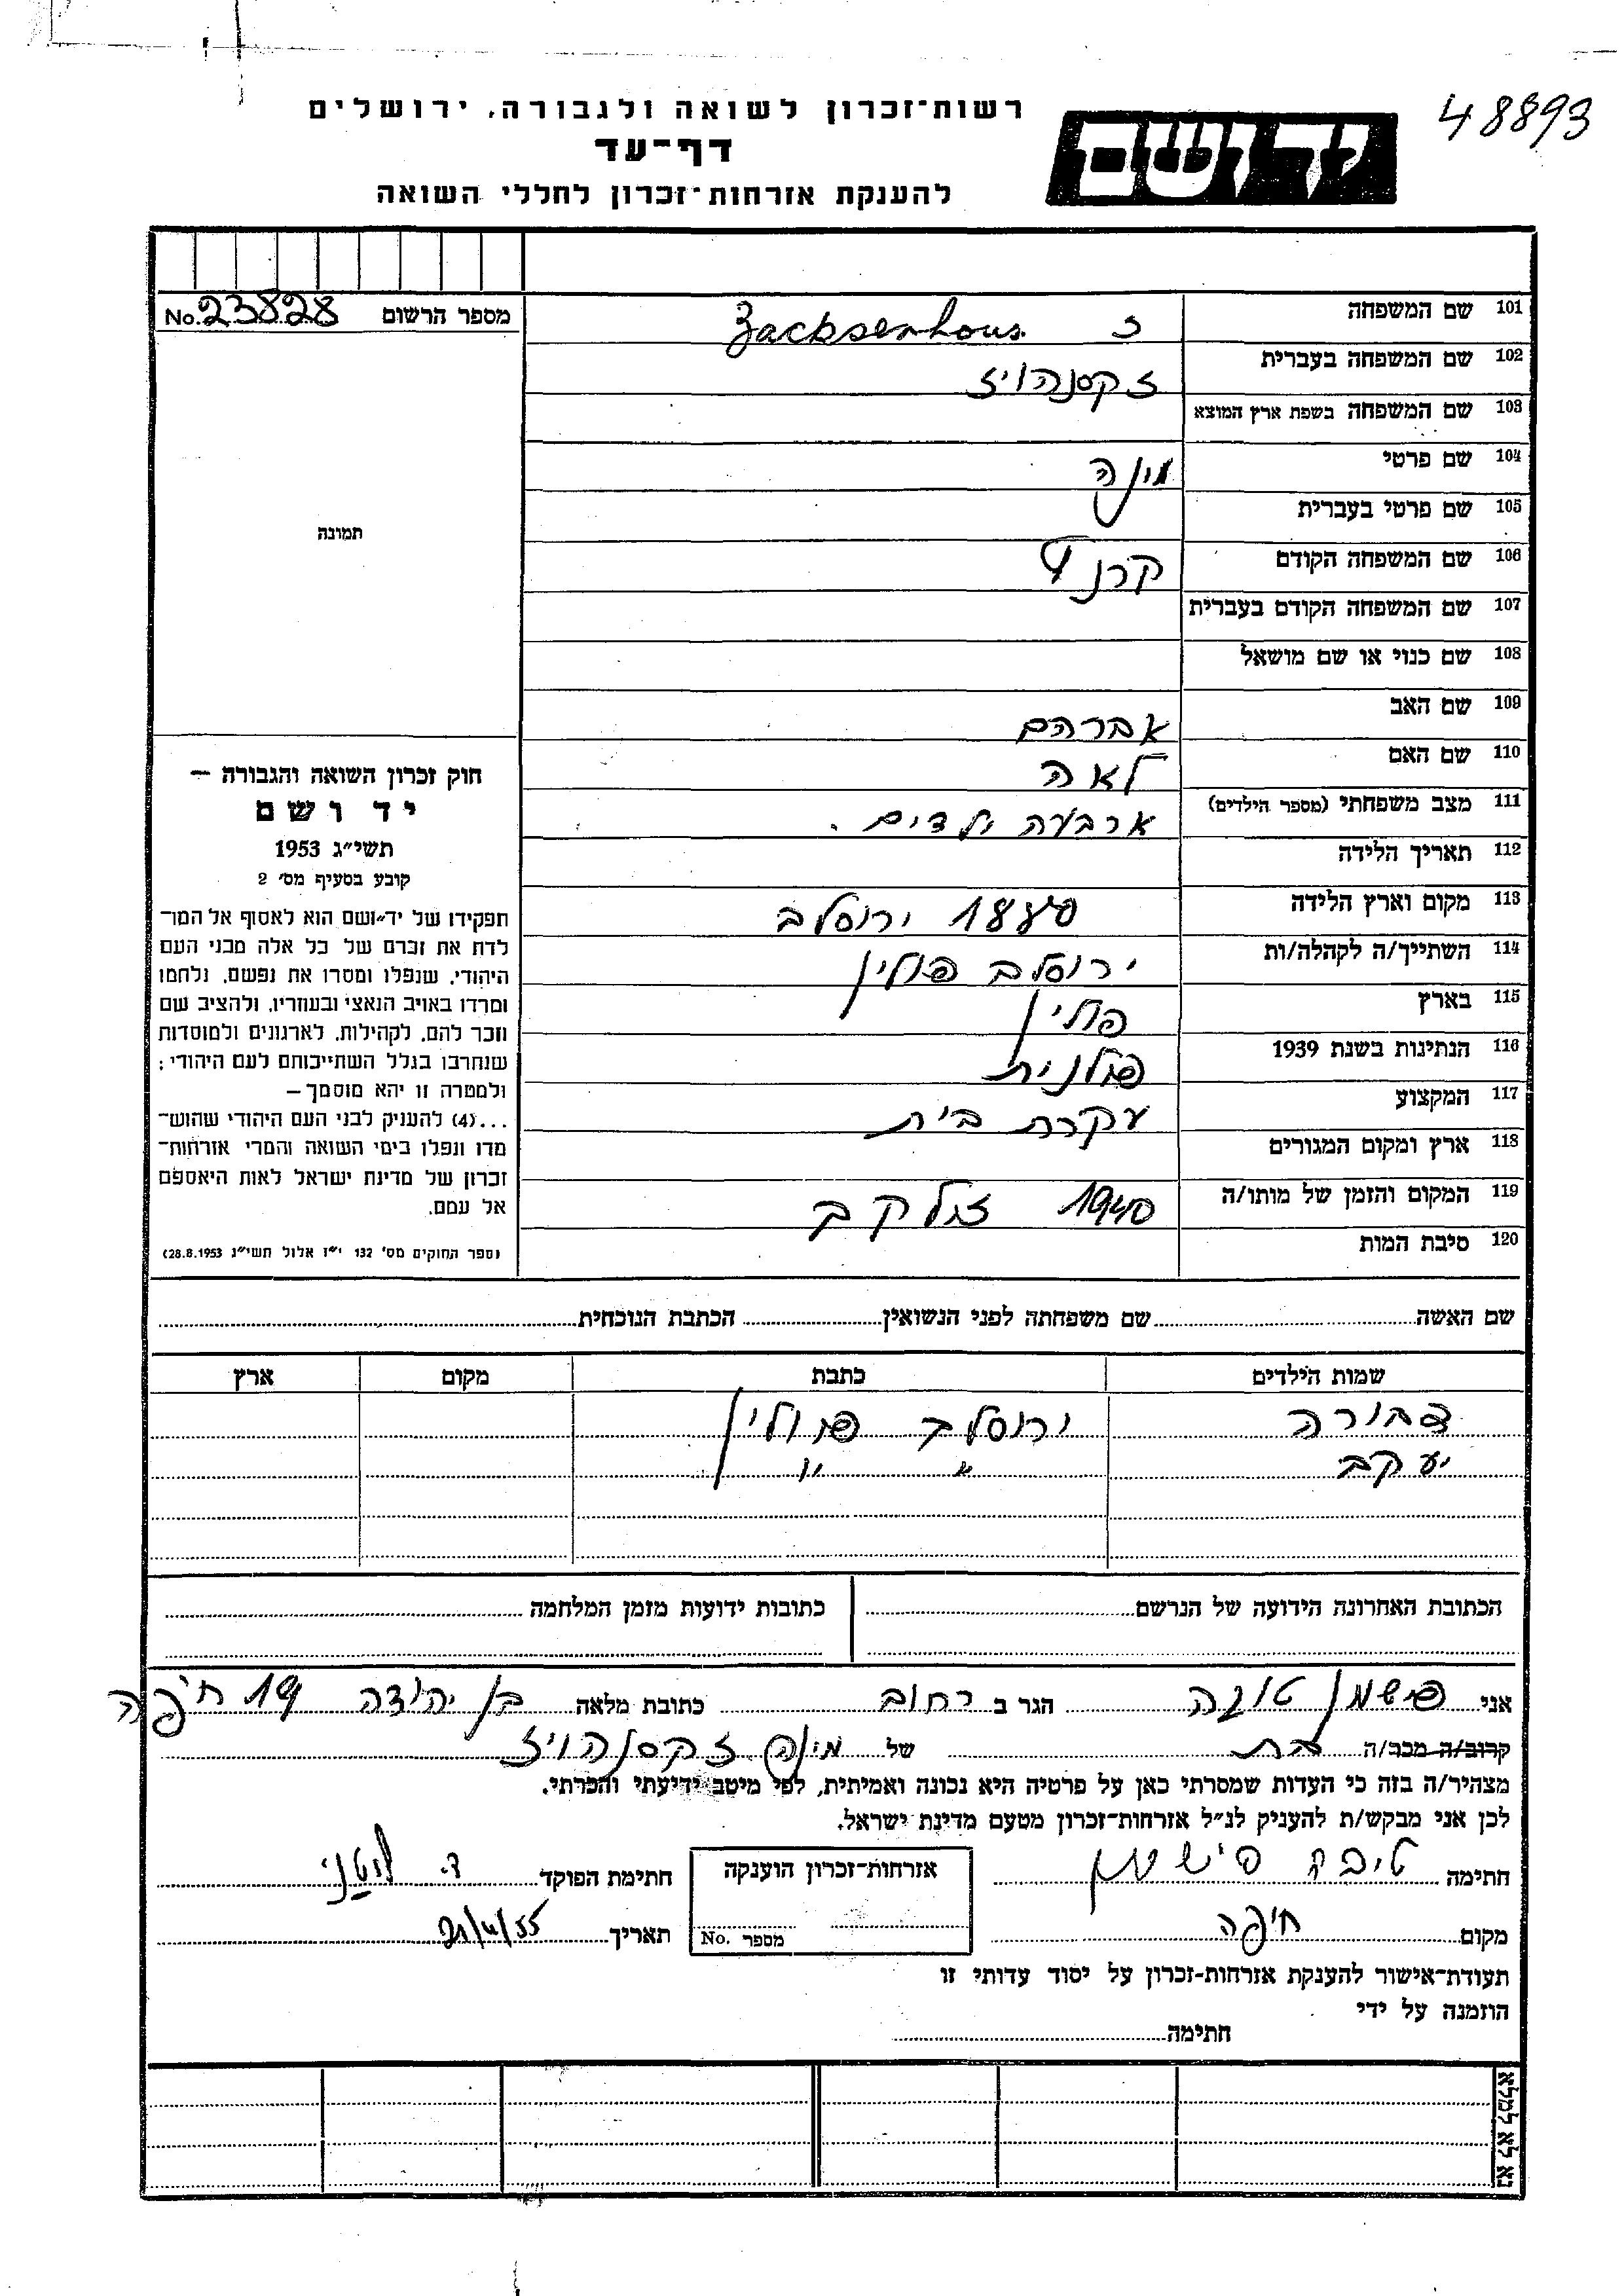 48893
יד ושם
רשות־זכרון לשואה ולגבורה, ירושלים
דף־עד
להענקת אזרחות־זכרון לחללי השואה
מספר הרשום No. 23828
תמונה
חוק זכרון השואה והגבורה —
יד ושם
תשי״ג 1953
קובע בסעיף מס׳ 2
תפקידו של יד־ושם הוא לאסוף אל המו־
לדת את זכרם של כל אלה מבני העם
היהודי, שנפלו ומסרו את נפשם, נלחמו
ומרדו באויב הנאצי ובעוזריו, ולהציב שם
וזכר להם, לקהילות, לארגונים ולמוסדות
שנחרבו בגלל השתייכותם לעם היהודי;
ולמטרה זו יהא מוסמך—
...(4) להעניק לבני העם היהודי שהוש־
מדו ונפלו בימי השואה והמרי אזרחות־
זכרון של מדינת ישראל לאות היאספם
אל עמם.
(ספר החוקים מס׳ 132 י״ז אלול תשי״ג 28.8.1953)
101 שם המשפחה Zacksenhous
102 שם המשפחה בעברית זקסנהויז
103 שם המשפחה בשפת ארץ המוצא
104 שם פרטי מינה
105 שם פרטי בעברית
106 שם המשפחה הקודם
107 שם המשפחה הקודם בעברית
108 שם כנוי או שם מושאל
109 שם האב אברהם
110 שם האם לאה
111 מצב משפחתי (מספר הילדים) ארבעה ילדים.
112 תאריך הלידה
113 מקום וארץ הלידה 1880 ירוסלב
114 השתייך/ה לקהלה/ות ירוסלב פולין
115 בארץ פולין
116 הנתינות בשנת 1939 פולנית
117 המקצוע עקרת בית
118 ארץ ומקום המגורים
119 המקום והזמן של מותו/ה 1940 זולקב
120 סיבת המות
שם האשה שם משפחתה לפני הנשואין הכתבת הנוכחית
שמות הילדים כתבת מקום ארץ
דבורה ירוסלב פולין
יעקב " "
הכתובת האחרונה הידועה של הנרשם כתובות ידועות מזמן המלחמה
אני פישמן טובה הגר ב רחוב כתובת מלאה בן יהודה 19 חיפה
קרוב/ה מכר/ה בת של מינה זקסנהויז
מצהיר/ה בזה כי העדות שמסרתי כאן על פרטיה היא נכונה ואמיתית, לפי מיטב ידיעתי והכרתי.
לכן אני מבקש/ת להעניק לנ״ל אזרחות־זכרון מטעם מדינת ישראל.
חתימה טובה פישמן אזרחות־זכרון הוענקה חתימת הפוקד
מקום חיפה מספר No. תאריך 21/4/55
תעודת־אישור להענקת אזרחות־זכרון על יסוד עדותי זו
הוזמנה על ידי
חתימה
נא לא למלא